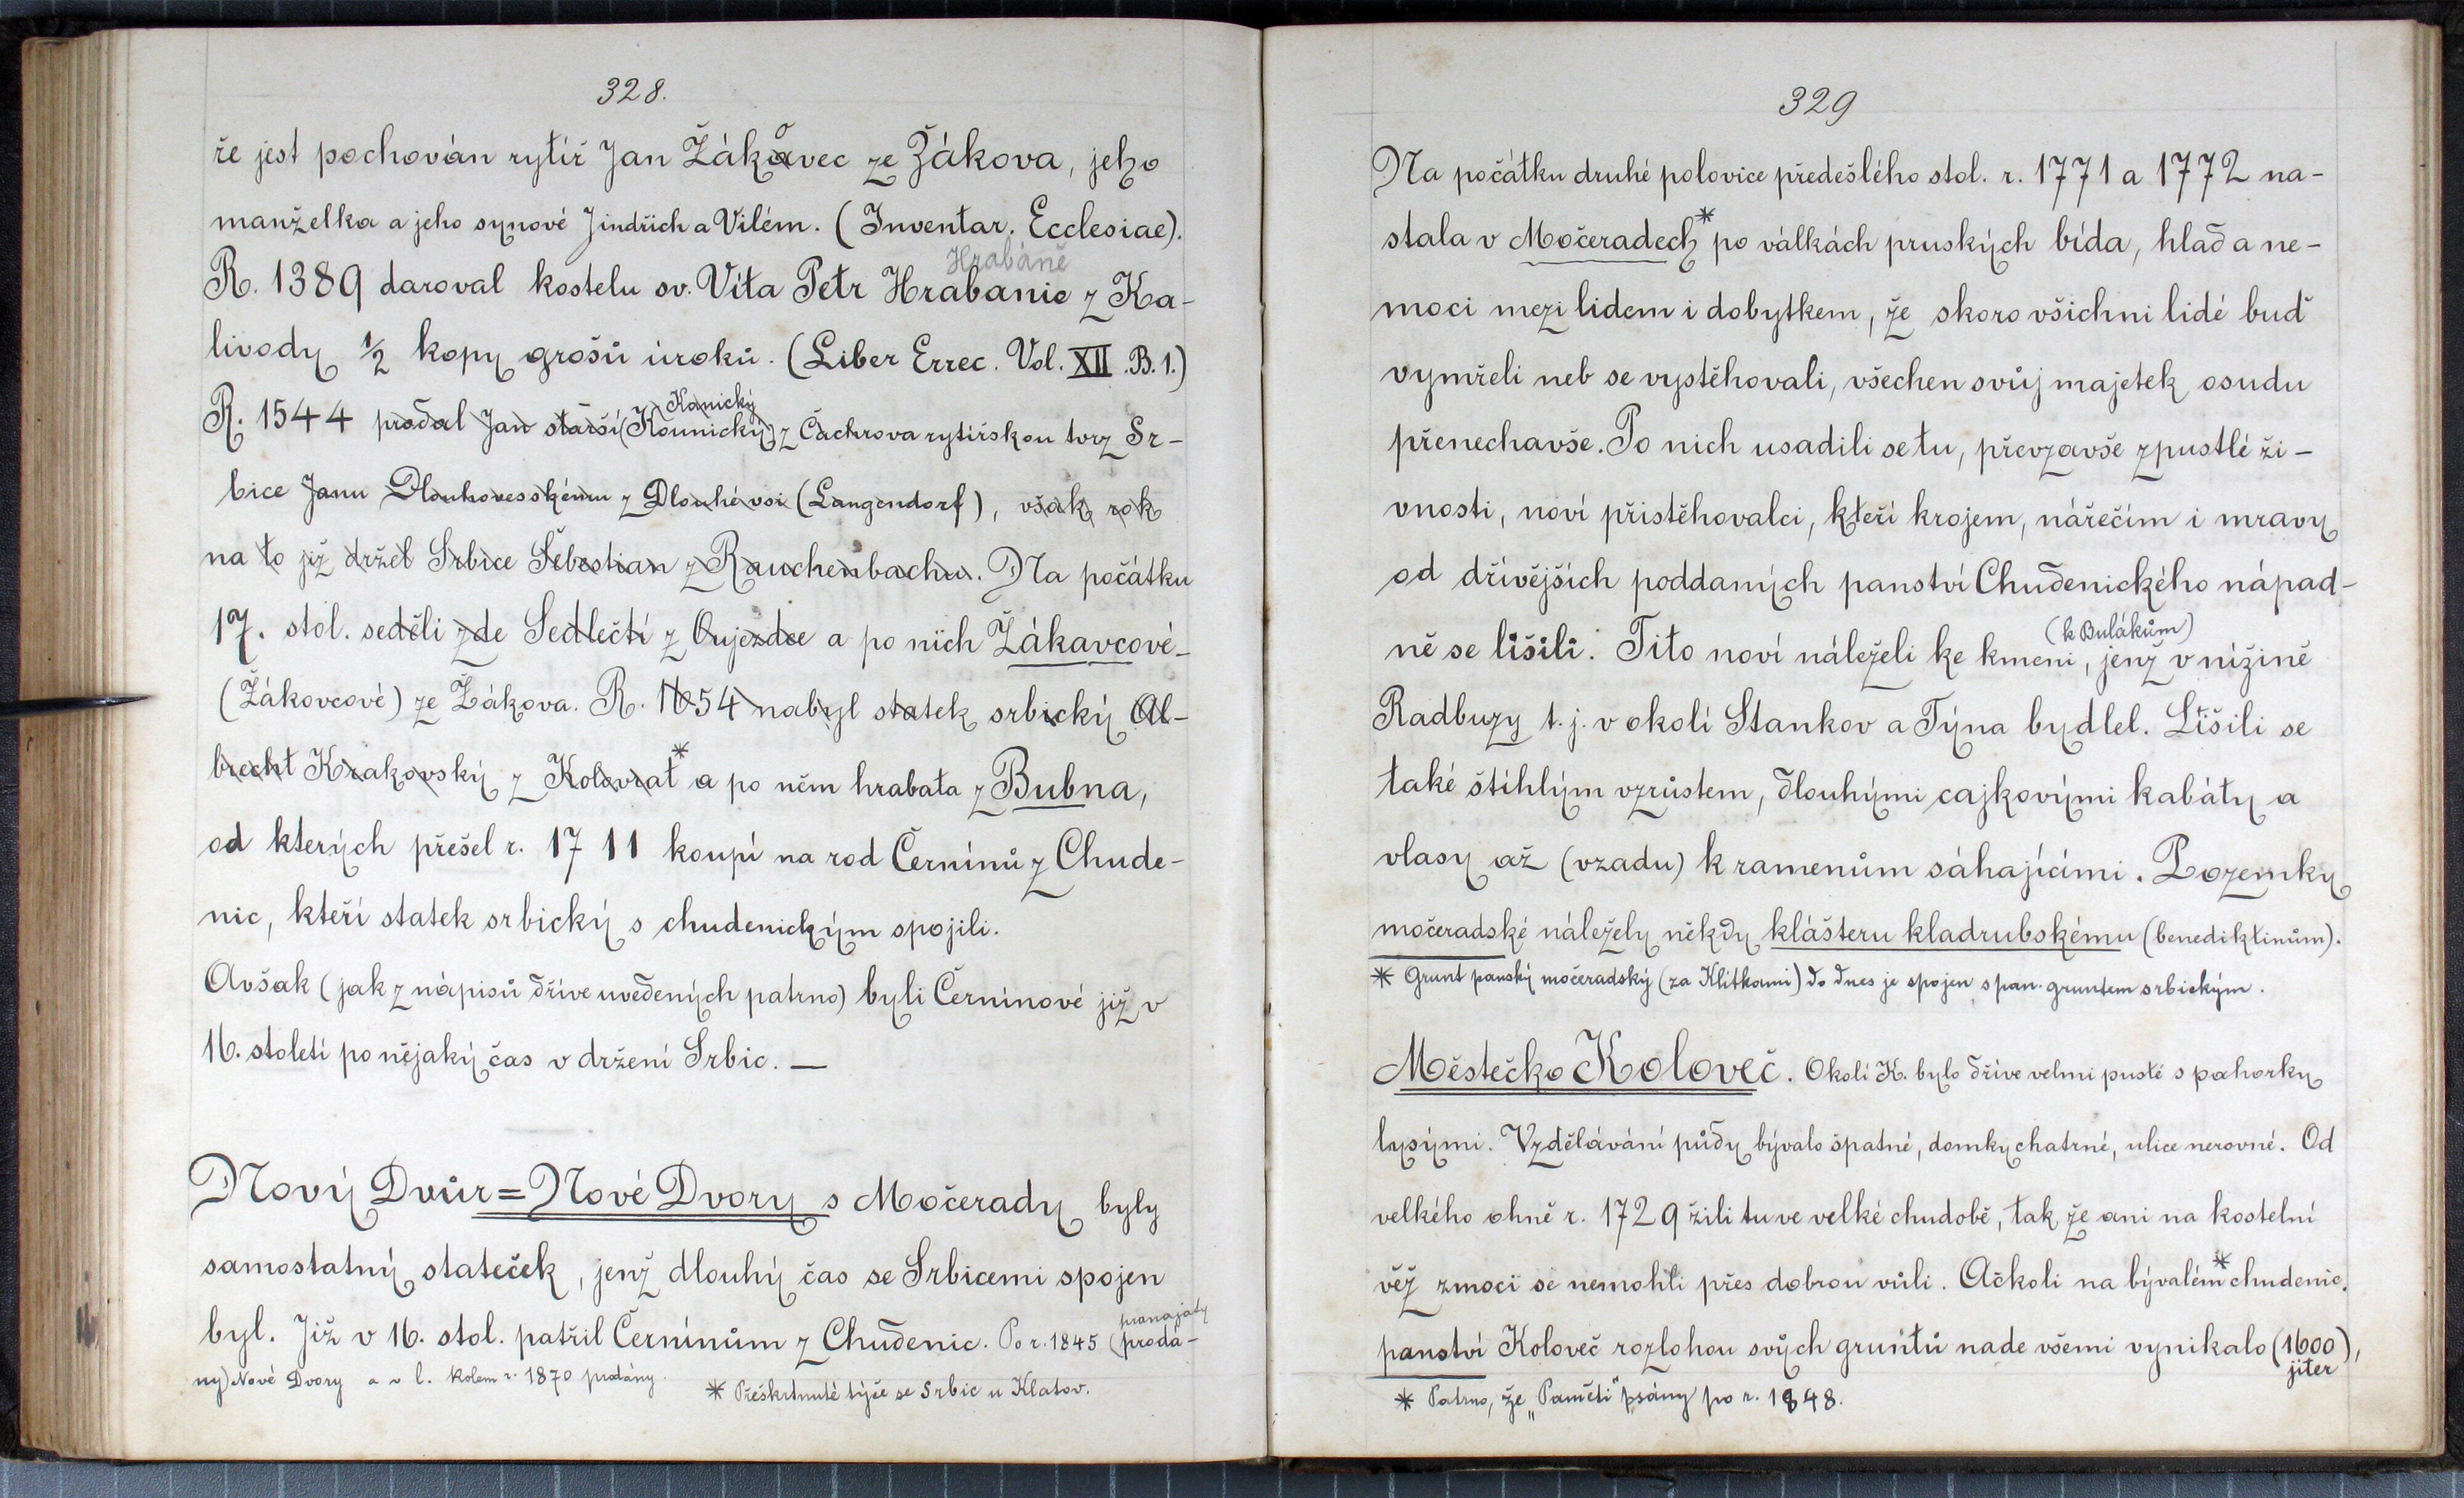 328.
že jest pochován rytíř Jan Žákovec ze Žákova, jeho
manželka a jeho synové Jindřich a Vilém. (Inventar. Ecclesiae).
Hrabáně
R. 1389 daroval kostelu sv. Víta Petr Hrabanie z Ka-
livody ½ kopy grošů úroků. (Liber Errec. Vol. XII. B. 1.)
Kanický
R. 1544 prodal Jan starší (Kounický) z Čachrova rytířskou tvrz Sr-
bice Janu Dlouhovesskému z Dlouhé vsi (Langendorf), však rok
na to již držel Srbice Šebestian z Rauchenbachu. Na počátku
17. stol. seděli zde Sedlečtí z Oujezdce a po nich Žákavcové
(Žákovcové) ze Žákova. R. 1654 nabyl statek srbický Al-
brecht Krakovský z Kolovrat* a po něm hrabata z Bubna,
od kterých přešel r. 1711 koupí na rod Černínů z Chude-
nic, kteří statek srbický s chudenickým spojili.
Avšak (jak z nápisů dříve uvedených patrno) byli Černínové již v
16. století po nějaký čas v držení Srbic. —
Nový Dvůr = Nové Dvory s Močerady byly
samostatný stateček, jenž dlouhý čas se Srbicemi spojen
byl. Již v 16. stol. patřil Černínům z Chudenic. Po r. 1845 (prodá-
pronajaty
ny) Nové Dvory a v l. kolem r. 1870 prodány.
* Přeškrtnuté týče se Srbic u Klatov.
329
Na počátku druhé polovice předešlého stol. r. 1771 a 1772 na-
stala v Močeradech* po válkách pruských bída, hlad a ne-
moci mezi lidem i dobytkem, že skoro všichni lidé buď
vymřeli neb se vystěhovali, všechen svůj majetek osudu
přenechavše. Po nich usadili se tu, převzavše zpustlé ži-
vnosti, noví přistěhovalci, kteří krojem, nářečím i mravy
od dřívějších poddaných panství Chudenického nápad-
(k Bulákům)
ně se lišili. Tito noví náleželi ke kmeni, jenž v nížině
Radbuzy t. j. v okolí Stankov a Týna bydlel. Lišili se
také štíhlým vzrůstem, dlouhými cajkovými kabáty a
vlasy až (vzadu) k ramenům sáhajícími. Pozemky
močeradské náležely někdy klášteru kladrubskému (benediktinům).
* Grunt panský močeradský (za Klitkami) do dnes je spojen s pan. gruntem srbickým.
Městečko Koloveč. Okolí K. bylo dříve velmi pusté s pahorky
lysými. Vzdělávání půdy bývalo špatné, domky chatrné, ulice nerovné. Od
velkého ohně r. 1729 žili tu ve velké chudobě, tak že ani na kostelní
věž zmoci se nemohli přes dobrou vůli. Ačkoli na bývalém* chudenic.
panství Koloveč rozlohou svých gruntů nade všemi vynikalo (1600),
jiter
* Patrno, že „Paměti" psány po r. 1848.